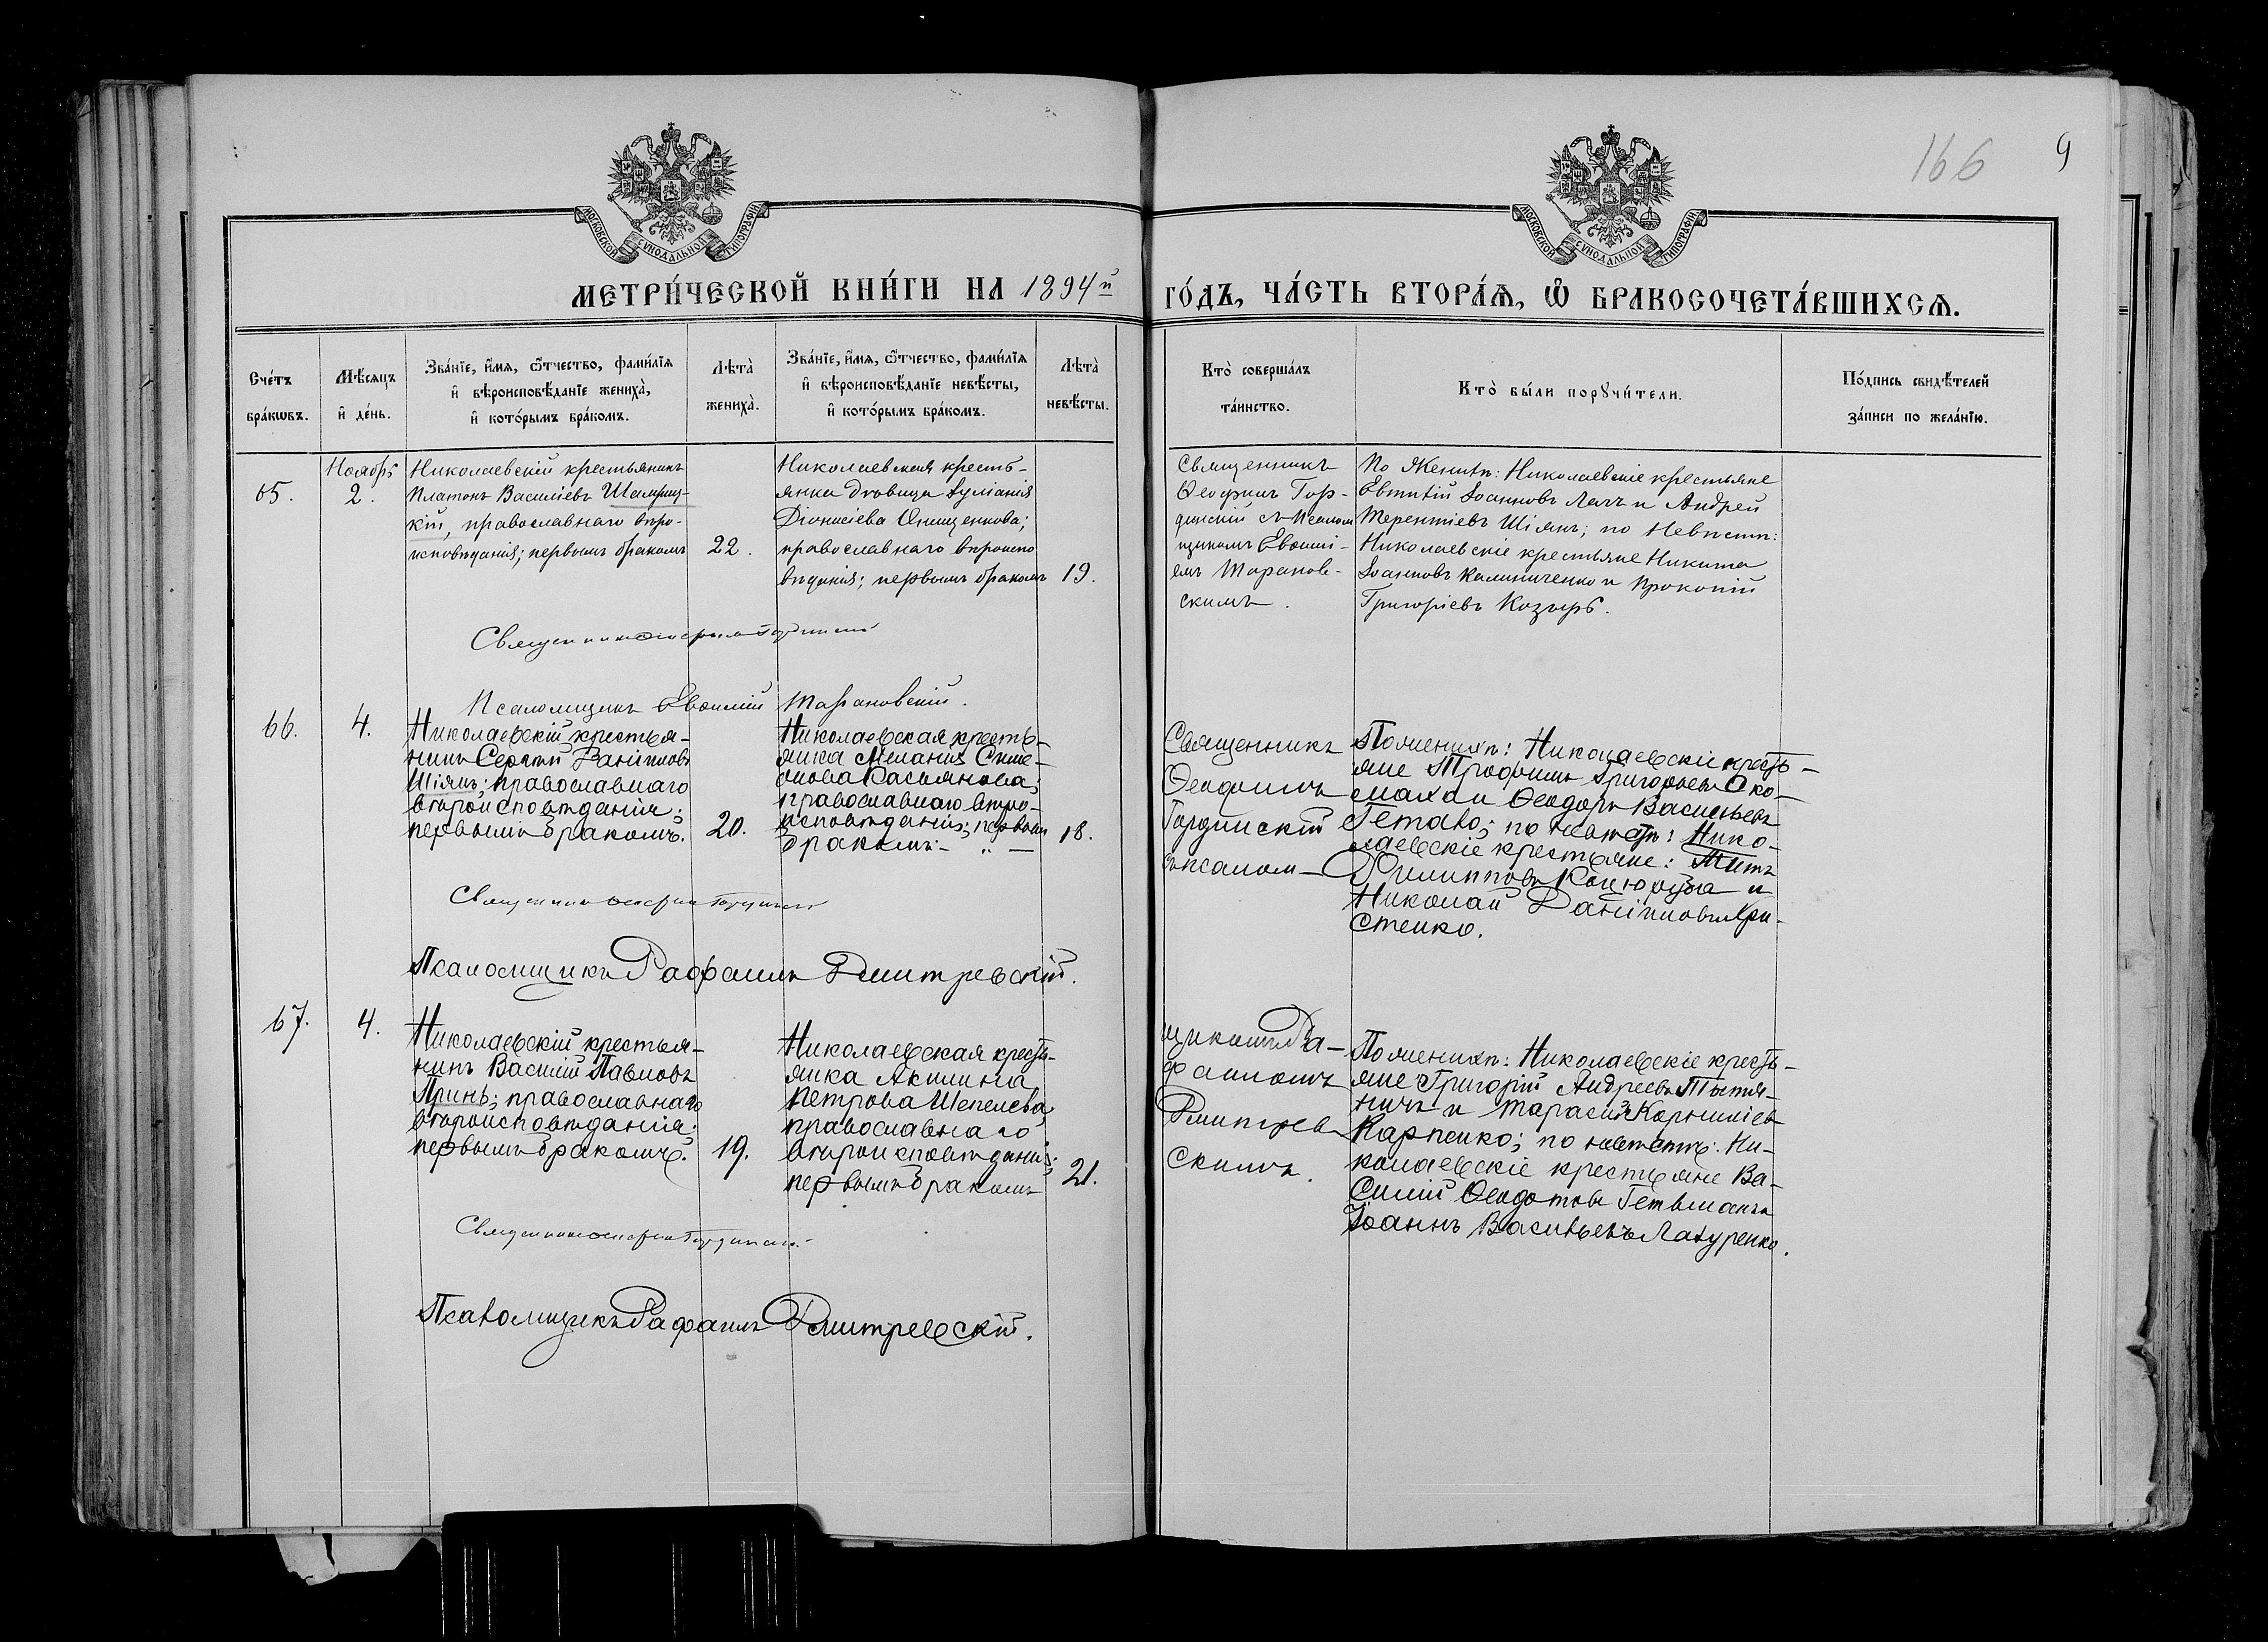 166
9
МОСКОВСКОЙ СѴНОДАЛЬНОЙ ТИПОГРАФІИ
МОСКОВСКОЙ СѴНОДАЛЬНОЙ ТИПОГРАФІИ
МЕТРИ́ЧЕСКОЙ КНИ́ГИ НА 1894й
ГО́ДЪ, ЧА́СТЬ ВТОРА́Ѧ, Ѽ БРАКОСОЧЕТА́ВШИХСѦ.
Сче́тъ
бра́кѡвъ.
Мѣ́сяцъ
и҆ де́нь.
Зва́нїе, и҆́мя, ѻ҆́тчество, фами́лїя
и҆ вѣроисповѣ́данїе жениха̀,
и҆ кото́рымъ бра́комъ.
Лѣ́та̀
жениха̀.
Зва́нїе, и҆́мя, ѻ҆́тчество, фами́лїя
и҆ вѣроисповѣ́данїе невѣ́сты,
и҆ кото́рымъ бра́комъ.
Лѣ́та̀
невѣ́сты.
Кто̀ соверша́лъ
та́инство.
Кто̀ бы́ли порꙋчи́тели.
По́дпись свидѣ́телей
за́писи по жела́нїю.
65.
Ноябрь
2.
Николаевскій крестьянинъ
Платонъ Василіевъ
кій, православнаго вѣро-
исповѣданія; первымъ бракомъ
22.
Николаевская кресть-
янка дѣвица Іуліанія
Діонисіева Онищенкова;
православнаго вѣроиспо
вѣданія; первымъ бракомъ
19.
Священникъ
Ѳеофилъ Гор-
динскій съ Псалом
щикомъ Евѳимі-
емъ Таранов-
скимъ.
По Женихѣ: Николаевскіе крестьяне
Евтихій Іоанновъ и Андрей
Терентіевъ Шіянъ; по Невѣстѣ:
Николаевскіе крестьяне Никита
Іоанновъ Калиниченко и Прокопій
Григоріевъ Козырь.
Священникъ Ѳеофилъ Гординскій
Псаломщикъ Евѳимій Тарановскій.
66.
4.
Николаевскій крестья-
нинъ Сергій Даніиловъ
Шіянъ; православнаго
вѣроисповѣданія;
первымъ бракомъ.
20.
Николаевская кресть-
янка Меланія Симе-
онова Касьянова;
православнаго вѣро-
исповѣданія; первымъ
бракомъ. - „ -
18.
Священникъ
Ѳеофилъ
Гординскій
съ псалом-
По женихѣ: Николаевскіе кресть-
яне Трофимъ Григорьевъ Ско-
и Ѳеодоръ Васильевъ
по невѣстѣ: Нико-
лаевскіе крестьяне: Титъ
Филипповъ и
Николай Даніиловъ Хри-
стенко.
Священникъ Ѳеофилъ Гординскій
Псаломщикъ Рафаилъ Дмитревскій.
67.
4.
Николаевскій крестья-
нинъ Василій Павловъ
Принь; православнаго
вѣроисповѣданія;
первымъ бракомъ.
19.
Николаевская кресть-
янка Акилина
Петрова Шепелева,
православнаго
вѣроисповѣданія;
первымъ бракомъ
21.
щикомъ Ра-
фаиломъ
Дмитрев
скимъ.
По женихѣ: Николаевскіе кресть-
яне Григорій Андреевъ
и Тарасій Корнилієв
Карпенко; по невѣстѣ: Ни-
колаевскіе крестьяне Ва-
силій Ѳеодотовъ Гетьманъ
Іоаннъ Васильевъ Лазуренко.
Священникъ Ѳеофилъ Гординскій
Псаломщикъ Рафаилъ Дмитревскій.